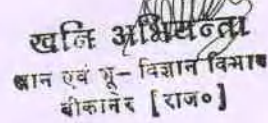 खनि अभियन्ता
खान एवं भू-विज्ञान विभाग
बीकानेर [राज०]